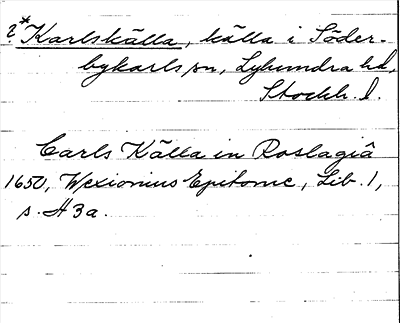 ?*Karlskälla, källa i Söder-
bykarls sn, Lyhundra hd,
Stockh. l.
Carls Källa in Roslagiâ
1650, Wexionius Epitome, Lib. 1,
s. H 3 a.